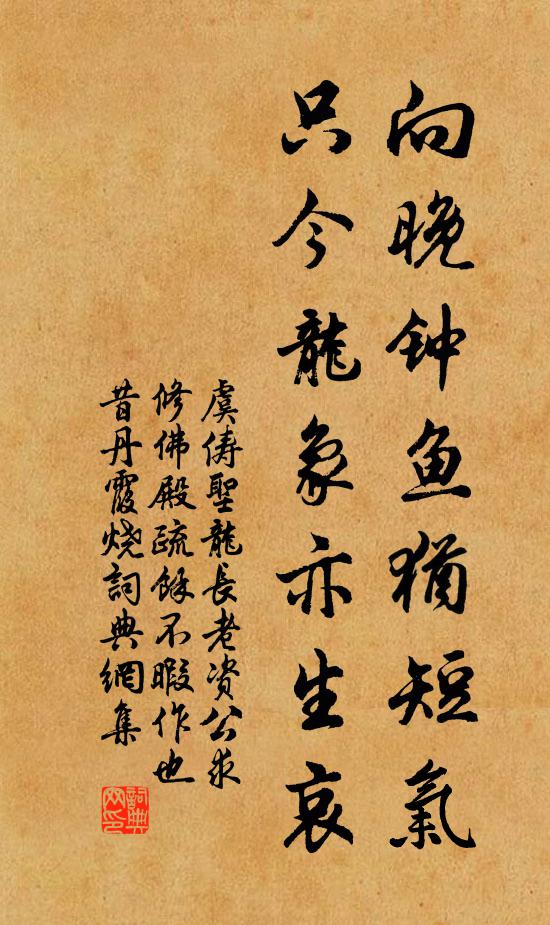 向晚钟鱼犹短氣
只今龍象亦生哀
虞俦聖龍長老资公求
修佛殿疏馀不暇作也
昔丹霞烧詞典網集
詞典
网印